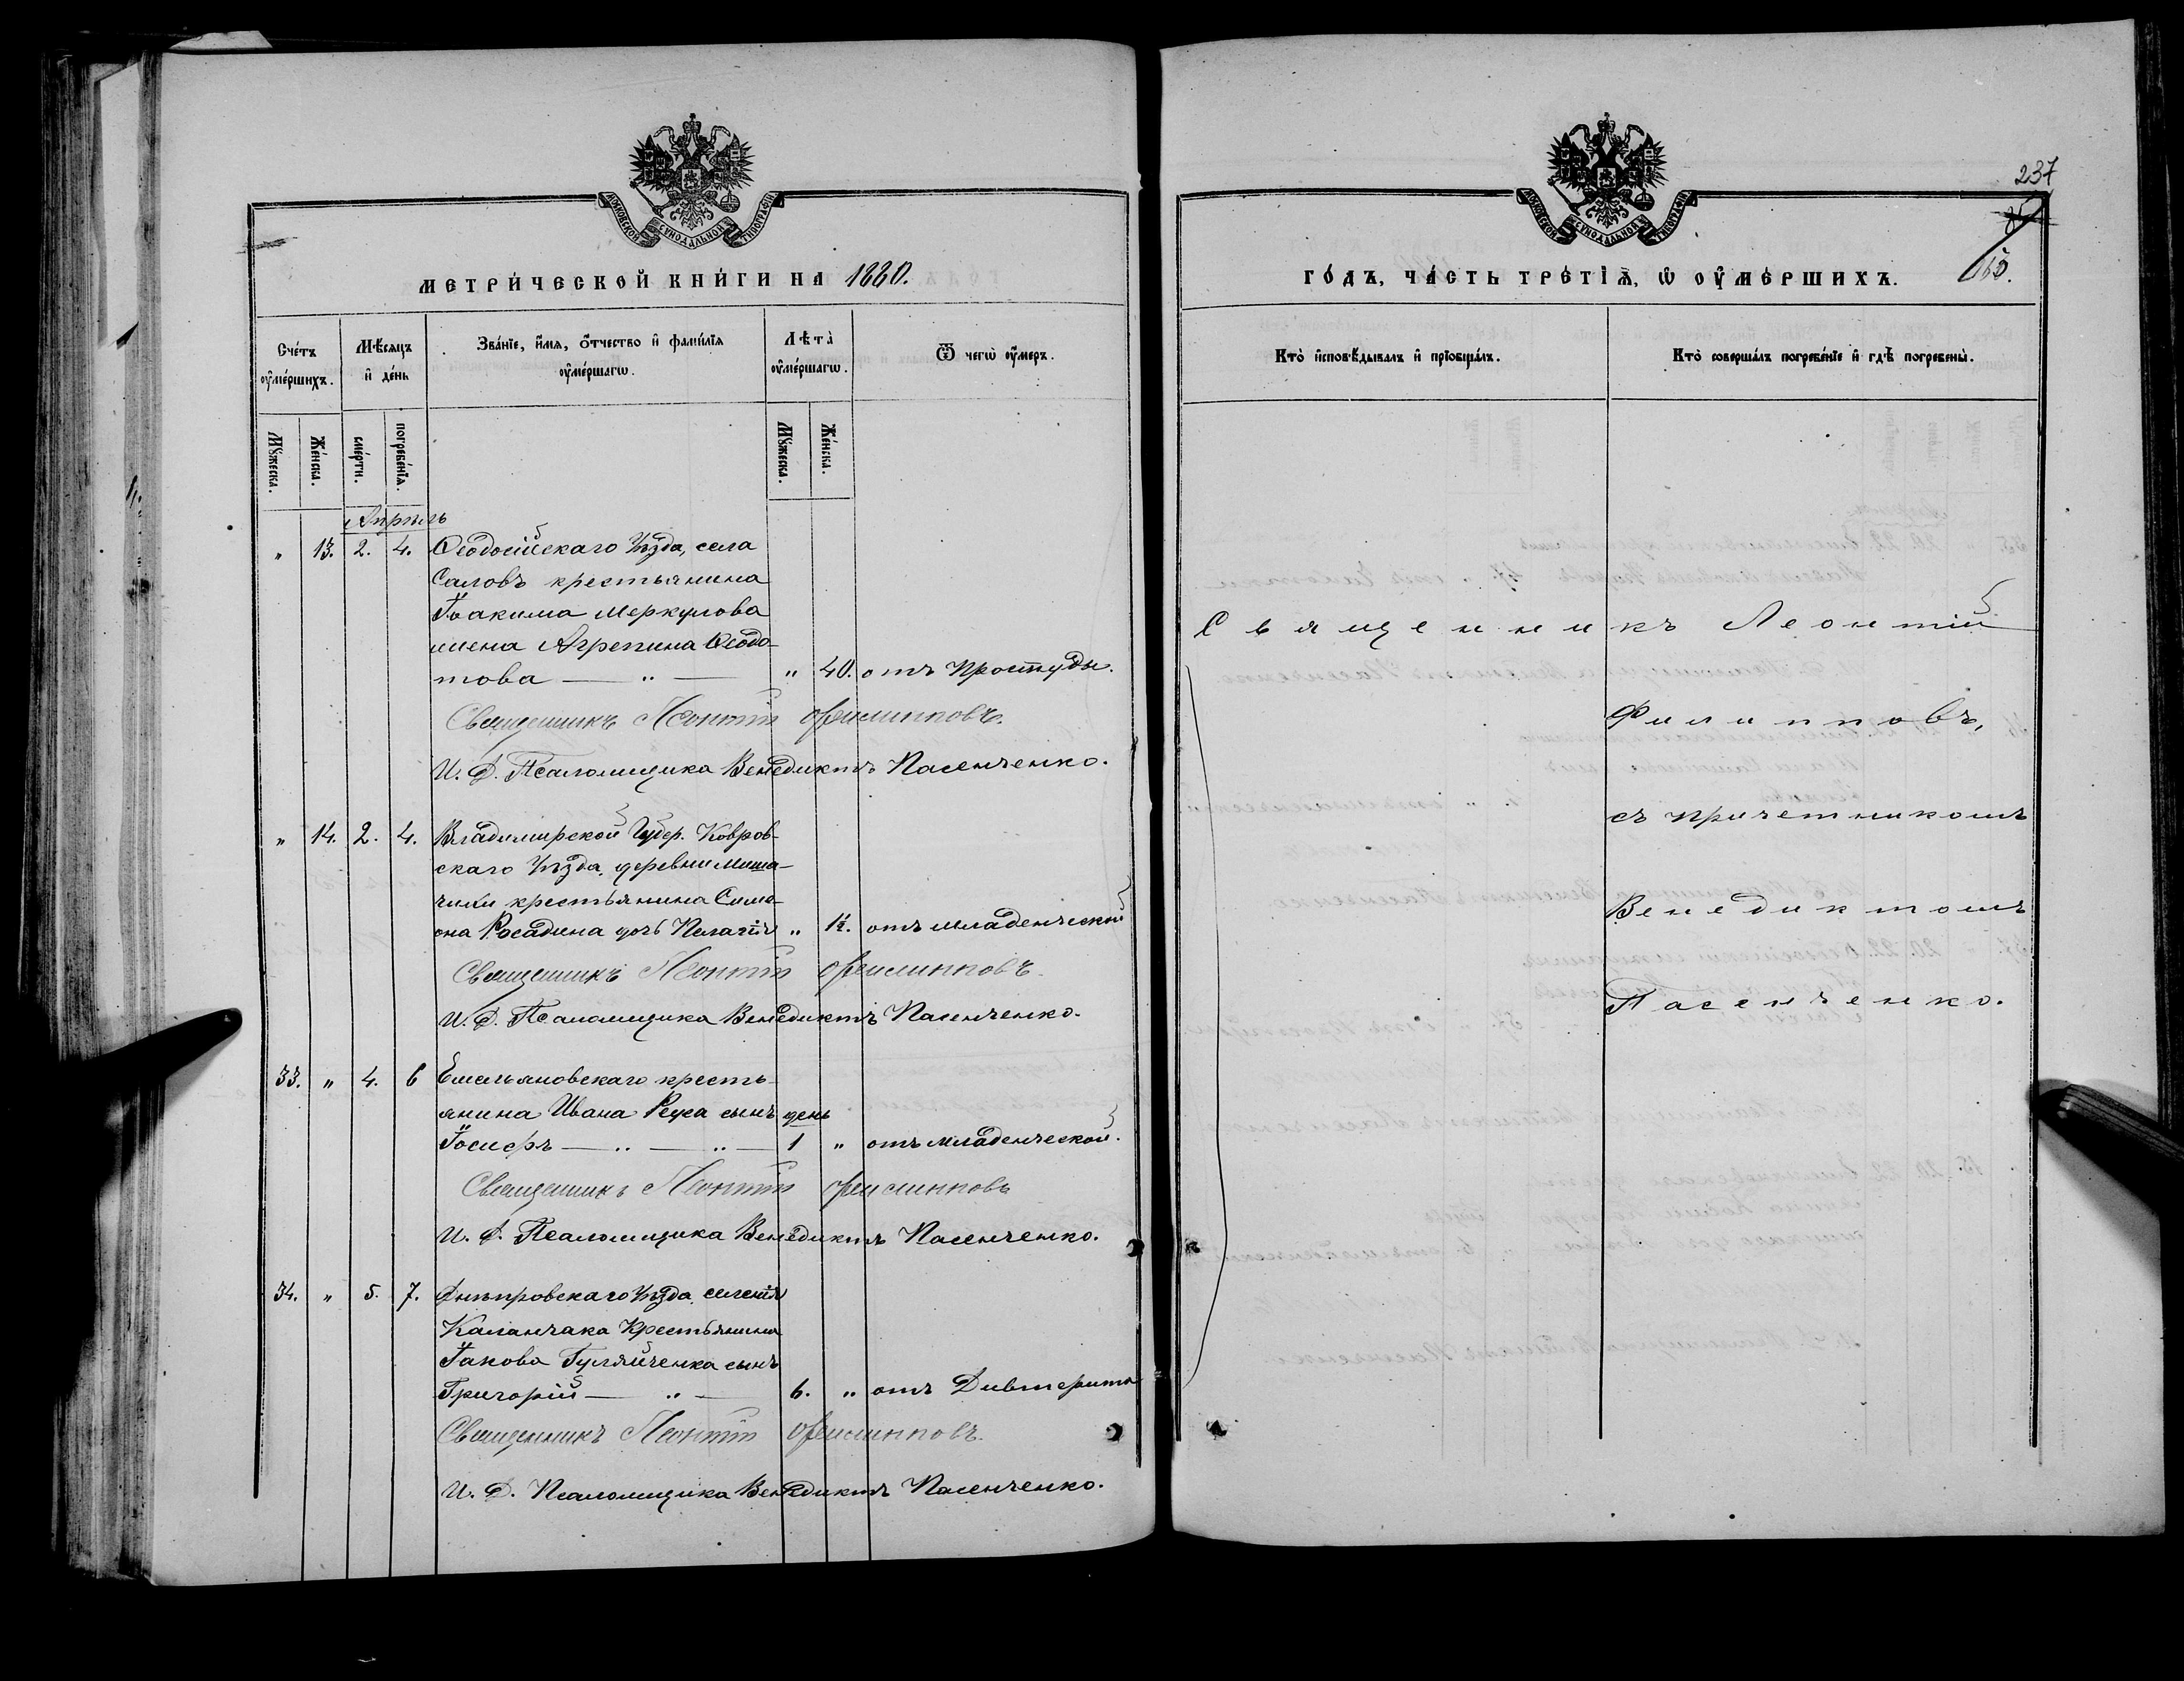 МОСКОВСКОЙ СѴНОДАЛЬНОЙ ТИПОГРАФІИ
МЕТРИ́ЧЕСКОЙ КНИ́ГИ НА 1880.
Сче́тъ ᲂу҆ме́ршихъ.
Мѣ́сяцъ и҆ де́нь
Зва́нїе, и҆́мя, ѻ҆́тчество и҆ фами́лїя ᲂу҆ме́ршагѡ.
Лѣ́та ᲂу҆ме́ршагѡ.
Ѿ чегѡ̀ ᲂу҆́меръ.
Мꙋ́жеска.
Же́нска.
сме́рти.
погребе́нїѧ.
Мꙋ́жеска.
Же́нска.
Апрѣль
" 13. 2. 4. Ѳеодосійскаго Уѣзда, села
Саловъ крестьянина
Іоакима Меркулова
жена Агрепина Ѳеодо-
това — " — " 40. отъ простуды.
Священникъ Леонтій Филипповъ.
И. Д. Псаломщика Венедиктъ Пасенченко.
" 14. 2. 4. Владимирской Губер. Ковров-
скаго Уѣзда, деревни Миша-
чихи крестьянина Симе-
она Росадина дочь Пелагія " 1½. отъ младенческой
Священникъ Леонтій Филипповъ.
И. Д. Псаломщика Венедиктъ Пасенченко.
33. " 4. 6 Емельяновскаго кресть-
янина Ивана Реуса сынъ день
Іосифъ — " — " — 1 " отъ младенческой.
Священникъ Леонтій Филипповъ
И. Д. Псаломщика Венедиктъ Пасенченко.
34. " 5. 7. Днѣпровскаго Уѣзда, селенія
Каланчака Крестьянина
Іакова Гуляйченка сынъ
Григорій — " — 6. " отъ Дивтерита
Священникъ Леонтій Филипповъ.
И. Д. Псаломщика Венедиктъ Пасенченко.
237
МОСКОВСКОЙ СѴНОДАЛЬНОЙ ТИПОГРАФІИ
ГО́ДЪ, ЧА́СТЬ ТРЕ́ТІѦ, Ѡ҆ ОУ҆МЕ́РШИХЪ.
Кто̀ и҆сповѣ́дывалъ и҆ прїѻбща́лъ.
Кто̀ соверша́лъ погребе́нїе и҆ гдѣ̀ погребены̀.
Священникъ Леонтій
Филипповъ,
съ причетникомъ
Венедиктомъ
Пасенченко.